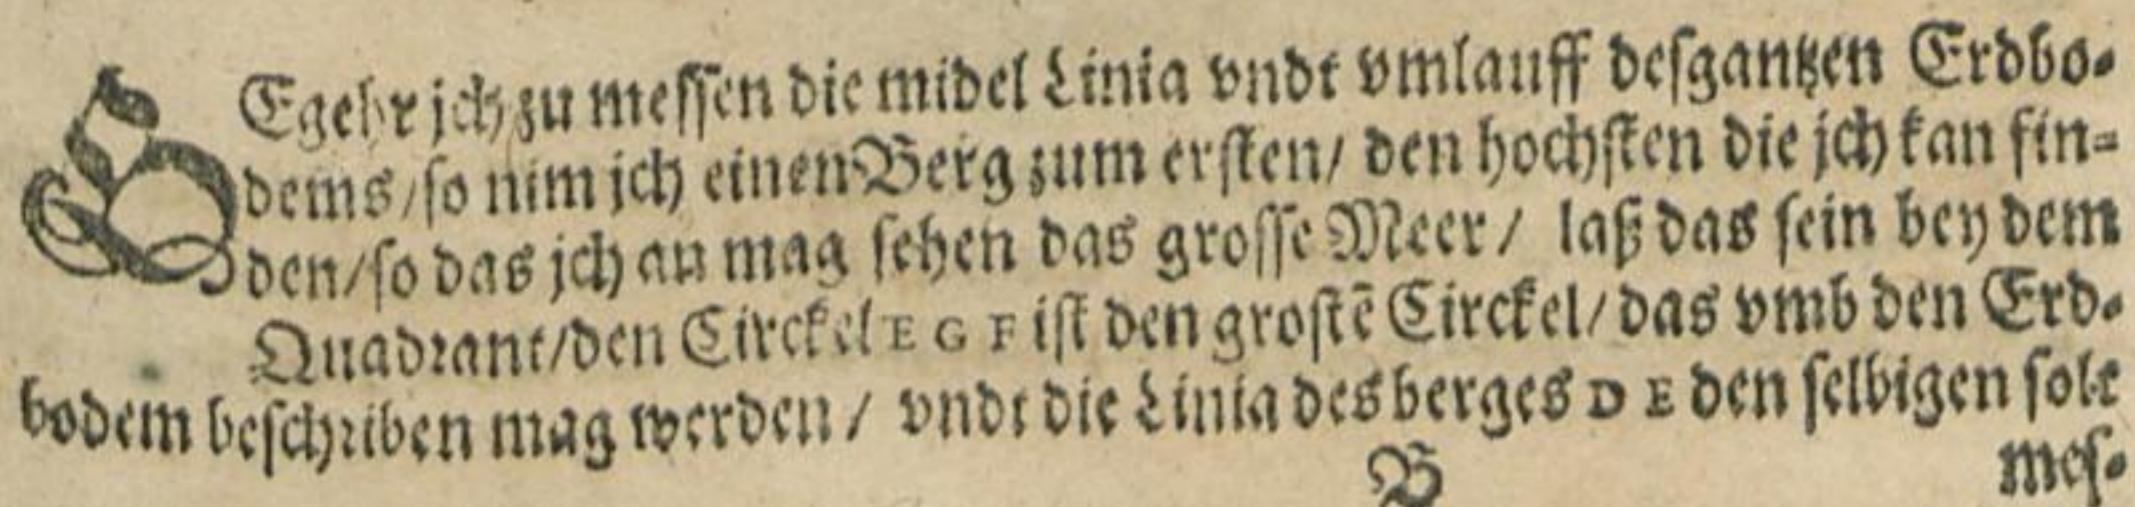 BEgehr jch zu meſſen die midel Linia vndt vmlauff deſgantzen Erdbo-
dems/ſo nim jch einen Berg zum erſten/ den hochſten die jch kan fin-
den/ſo das jch an mag ſehen das groſſe Meer/ laß das ſein bey dem
Quadrant/den Circkel E G F iſt den groſtē Circkel/das vmb den Erd-
bodem beſchriben mag werden/ vndt die Linia des berges D E den ſelbigen ſolt
B meſ-